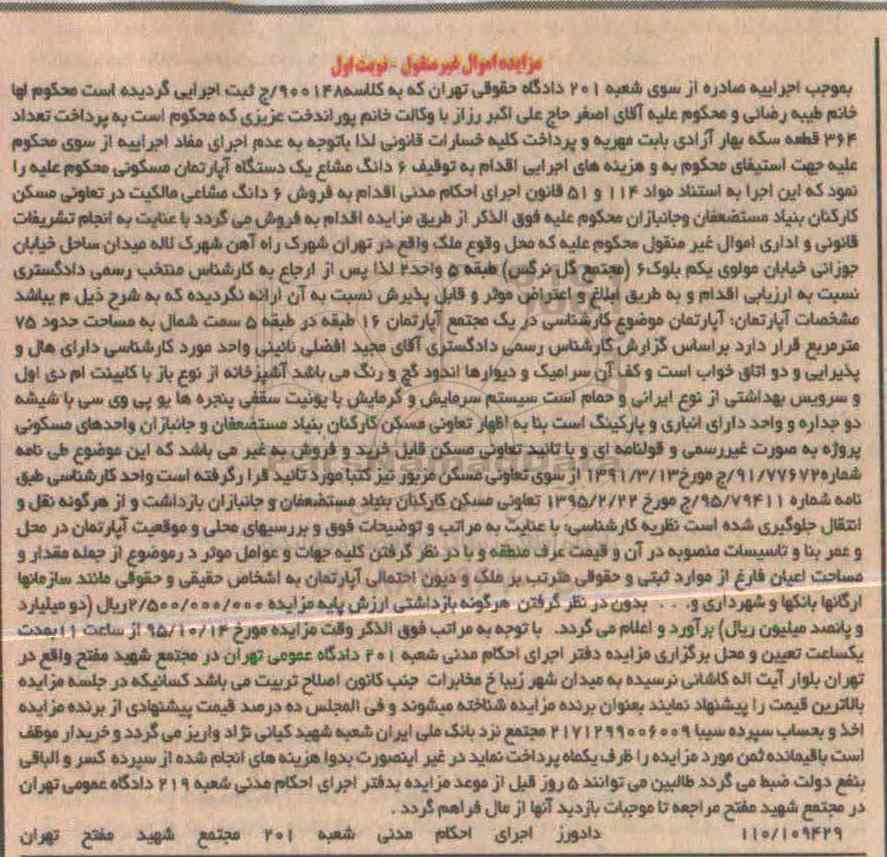 مزایده اموال غیر منقول - نوبت اول
بموجب اجراییه صادره از سوی شعبه ۲۰۱ دادگاه حقوقی تهران که به کلاسه۹۰۰۱۴۸/ج ثبت اجرایی گردیده است محکوم لها
خانم طیبه رضائی و محکوم علیه آقای اصغر حاج علی اکبر رزاز با وکالت خانم پوراندخت عزیزی که محکوم است به پرداخت تعداد
۳۶۴ قطعه سکه بهار آزادی بابت مهریه و پرداخت کلیه خسارات قانونی لذا باتوجه به عدم اجرای مفاد اجراییه از سوی محکوم
علیه جهت استیفای محکوم به و هزینه های اجرایی اقدام به توقیف ۶ دانگ مشاع یک دستگاه آپارتمان مسکونی محکوم علیه را
نمود که این اجرا به استناد مواد ۱۱۴ و ۵۱ قانون اجرای احکام مدنی اقدام به فروش ۶ دانگ مشاعی مالکیت در تعاونی مسکن
کارکنان بنیاد مستضعفان وجانبازان محکوم علیه فوق الذکر از طریق مزایده اقدام به فروش می گردد با عنایت به انجام تشریفات
قانونی و اداری اموال غیر منقول محکوم علیه که محل وقوع ملک واقع در تهران شهرک راه آهن شهرک لاله میدان ساحل خیابان
جوزانی خیابان مولوی یکم بلوک۶ (مجتمع گل نرگس) طبقه ۵ واحد۲ لذا پس از ارجاع به کارشناس منتخب رسمی دادگستری
نسبت به ارزیابی اقدام و به طریق ابلاغ و اعتراض موثر و قابل پذیرش نسبت به آن ارائه نگردیده که به شرح ذیل م یباشد
مشخصات آپارتمان: آپارتمان موضوع کارشناسی در یک مجتمع آپارتمان ۱۶ طبقه در طبقه ۵ سمت شمال به مساحت حدود ۷۵
مترمربع قرار دارد براساس گزارش کارشناس رسمی دادگستری آقای مجید افضلی نائینی واحد مورد کارشناسی دارای هال و
پذیرایی و دو اتاق خواب است و کف آن سرامیک و دیوارها اندود گچ و رنگ می باشد آشپزخانه از نوع باز با کابینت ام دی اول
و سرویس بهداشتی از نوع ایرانی و حمام است سیستم سرمایش و گرمایش با یونیت سقفی پنجره ها یو پی وی سی با شیشه
دو جداره و واحد دارای انباری و پارکینگ است بنا به اظهار تعاونی مسکن کارکنان بنیاد مستضعفان و جانبازان واحدهای مسکونی
پروژه به صورت غیررسمی و قولنامه ای و با تائید تعاونی مسکن قابل خرید و فروش به غیر می باشد که این موضوع طی نامه
شماره۹۱/۷۷۶۷۲/ج مورخ۱۳۹۱/۳/۱۳ از سوی تعاونی مسکن مزبور نیز کتبا مورد تائید قرا رگرفته است واحد کارشناسی طبق
نامه شماره ۹۵/۷۹۴۱۱/ج مورخ ۱۳۹۵/۲/۲۲ تعاونی مسکن کارکنان بنیاد مستضعفان و جانبازان بازداشت و از هرگونه نقل و
انتقال جلوگیری شده است نظریه کارشناسی: با عنایت به مراتب و توضیحات فوق و بررسیهای محلی و موقعیت آپارتمان در محل
و عمر بنا و تاسیسات منصوبه در آن و قیمت عرف منطقه و با در نظر گرفتن کلیه جهات و عوامل موثر د رموضوع از جمله مقدار و
مساحت اعیان فارغ از موارد ثبتی و حقوقی مترتب بر ملک و دیون احتمالی آپارتمان به اشخاص حقیقی و حقوقی مانند سازمانها
ارگانها بانکها و شهرداری و. . . بدون در نظر گرفتن هرگونه بازداشتی ارزش پایه مزایده ۲/۵۰۰/۰۰۰/۰۰۰ریال (دو میلیارد
و پانصد میلیون ریال) برآورد و اعلام می گردد. با توجه به مراتب فوق الذکر وقت مزایده مورخ ۹۵/۱۰/۱۴ از ساعت ۱۱بمدت
یکساعت تعیین و محل برگزاری مزایده دفتر اجرای احکام مدنی شعبه ۲۰۱ دادگاه عمومی تهران در مجتمع شهید مفتح واقع در
تهران بلوار آیت اله کاشانی نرسیده به میدان شهر زیبا خ مخابرات جنب کانون اصلاح تربیت می باشد کسانیکه در جلسه مزایده
بالاترین قیمت را پیشنهاد نمایند بعنوان برنده مزایده شناخته میشوند و فی المجلس ده درصد قیمت پیشنهادی از برنده مزایده
اخذ و بحساب سپرده سیبا ۲۱۷۱۲۹۹۰۰۶۰۰۹ مجتمع نزد بانک ملی ایران شعبه شهید کیانی نژاد واریز می گردد و خریدار موظف
است باقیمانده ثمن مورد مزایده را ظرف یکماه پرداخت نماید در غیر اینصورت بدوا هزینه های انجام شده از سپرده کسر و الباقی
بنفع دولت ضبط می گردد طالبین می توانند ۵ روز قبل از موعد مزایده بدفتر اجرای احکام مدنی شعبه ۲۱۹ دادگاه عمومی تهران
در مجتمع شهید مفتح مراجعه تا موجبات بازدید آنها از مال فراهم گردد .
۱۱۰/۱۰۹۴۲۹ دادورز اجرای احکام مدنی شعبه ۲۰۱ مجتمع شهید مفتح تهران